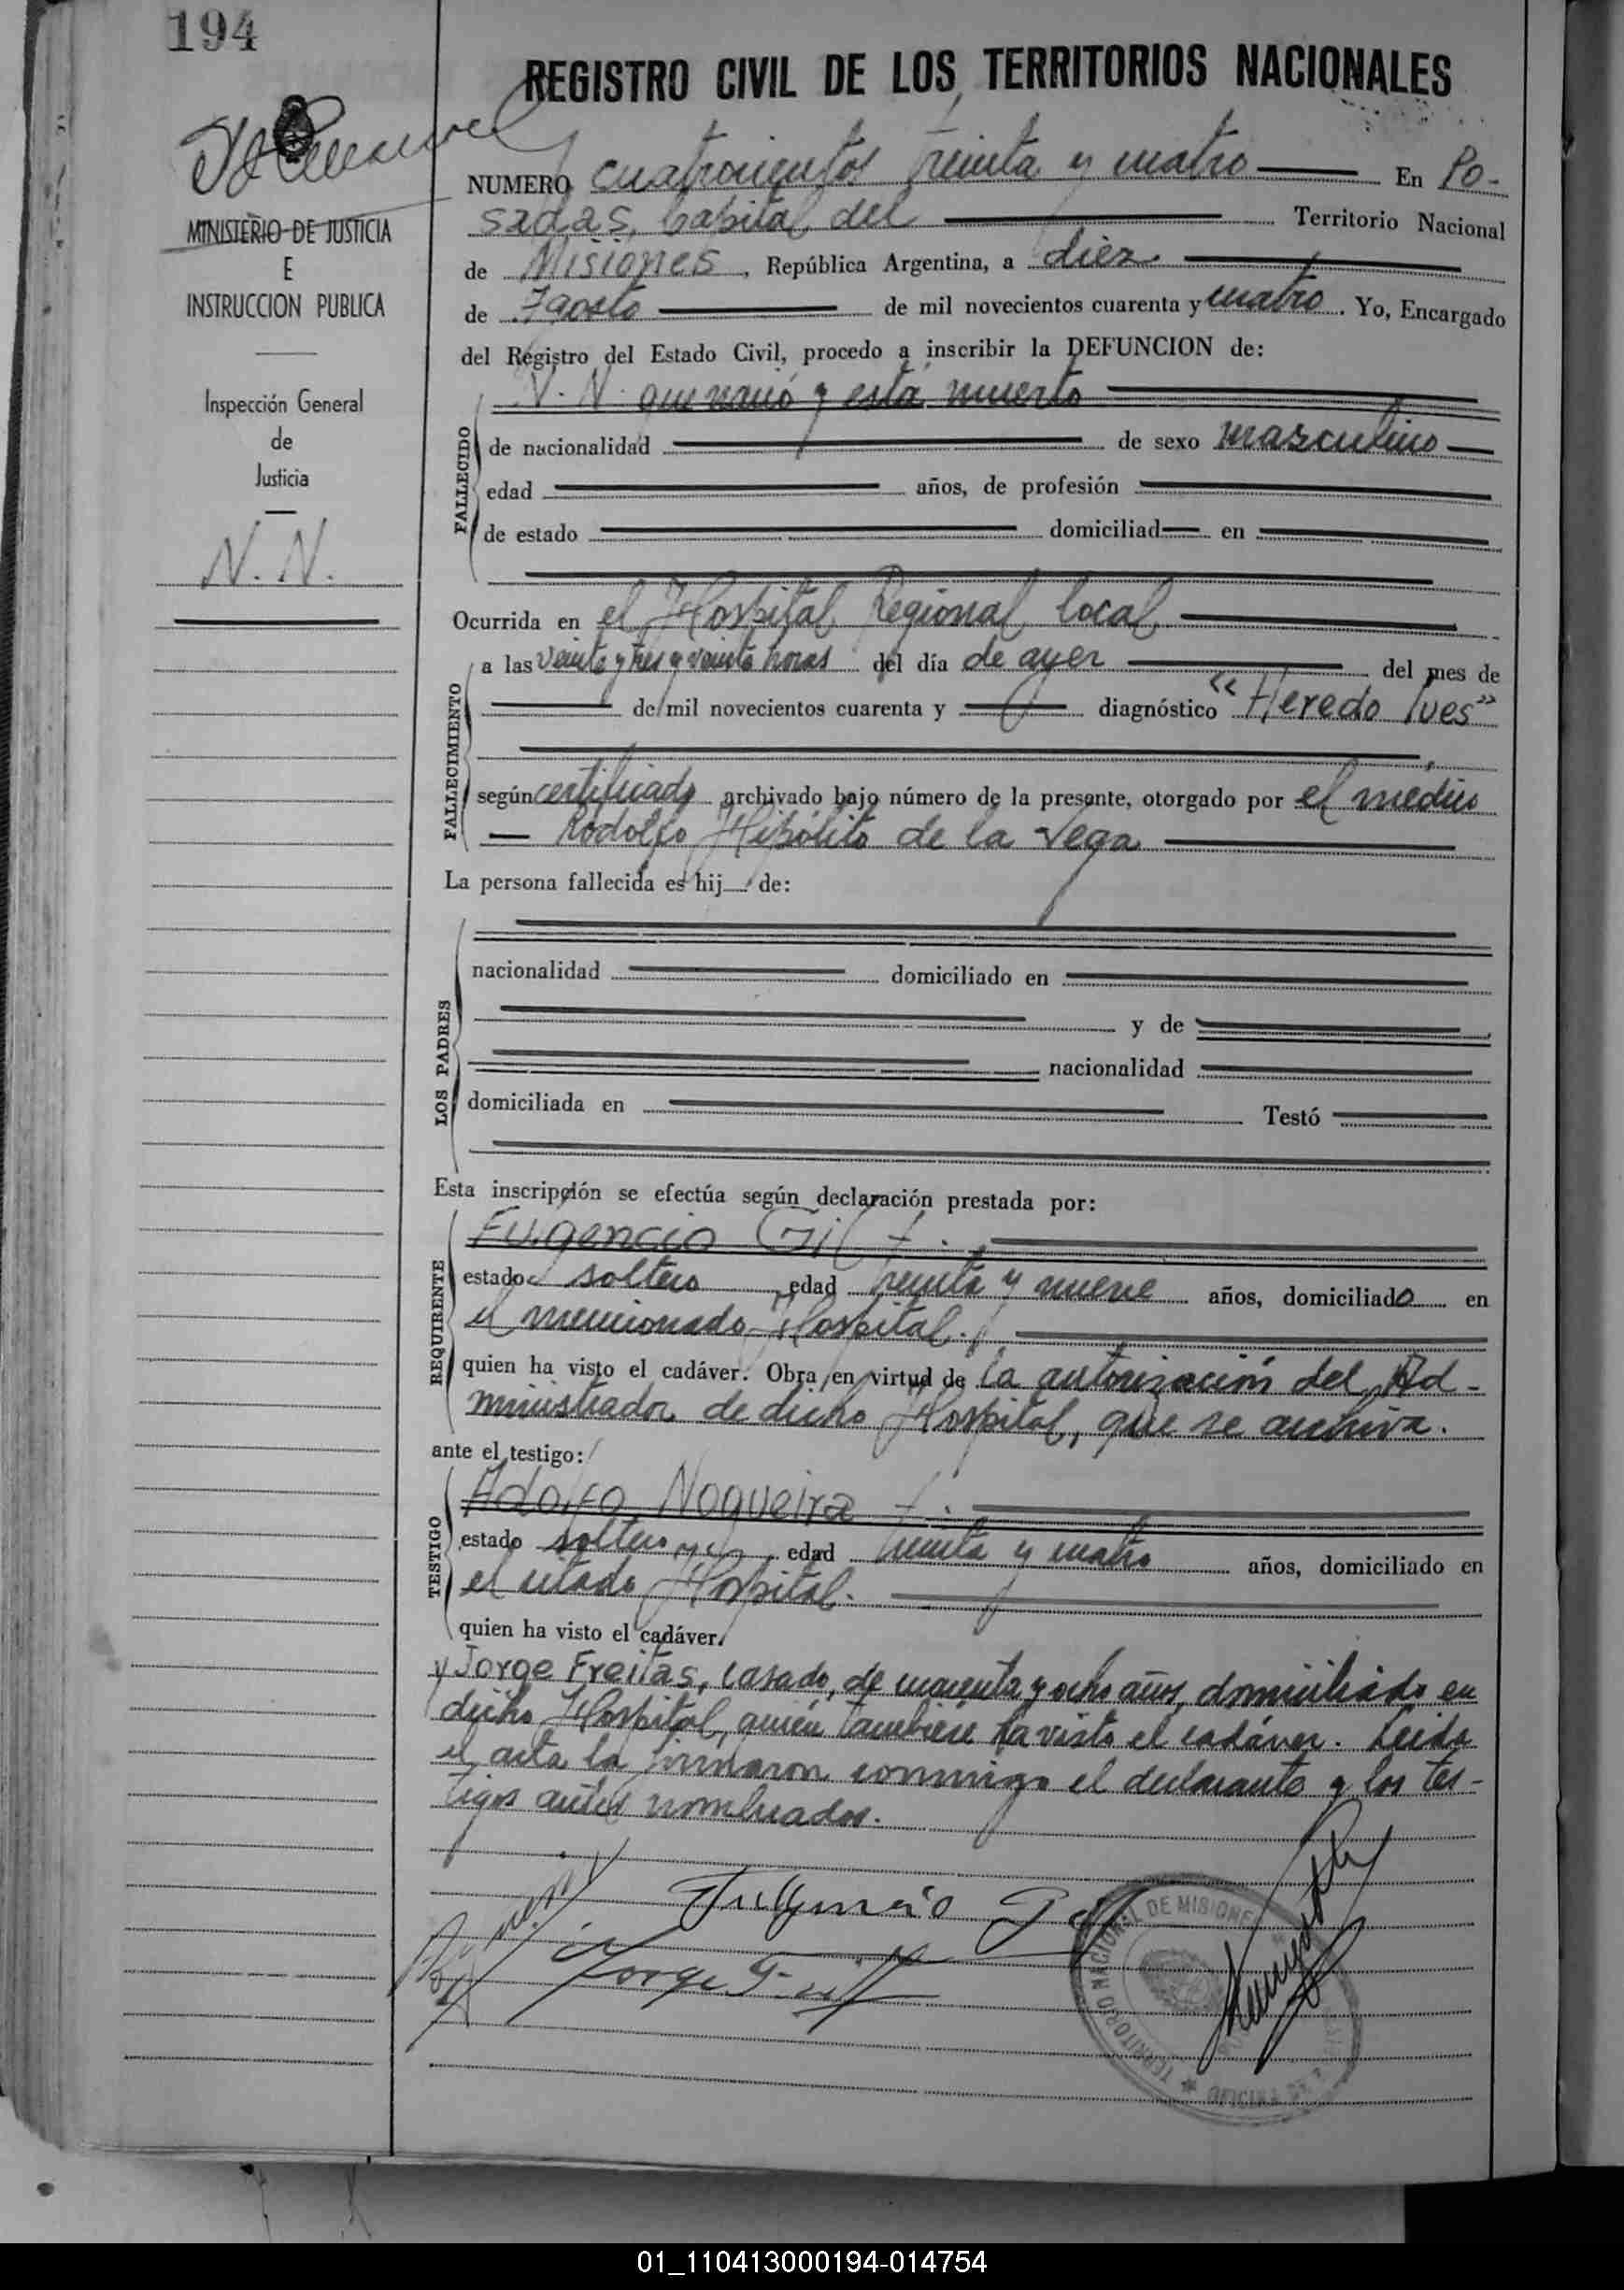 194
REGISTRO CIVIL DE LOS TERRITORIOS NACIONALES
MINISTERIO DE JUSTICIA
E
INSTRUCCION PUBLICA
Inspección General
de
Justicia
N. N.
NUMERO cuatrocientos treinta y cuatro En Po-
sadas, Capital del Territorio Nacional
de Misiones, República Argentina, a diez
de Agosto de mil novecientos cuarenta y cuatro. Yo, Encargado
del Registro del Estado Civil, procedo a inscribir la DEFUNCION de:
N. N. que nació y está muerto
FALLECIDO
de nacionalidad de sexo masculino
edad años, de profesión
de estado domiciliad en
Ocurrida en el Hospital Regional local
FALLECIMIENTO
a las veinte y tres y veinte horas del día de ayer del mes de
de mil novecientos cuarenta y diagnóstico "Heredo lues"
según certificado archivado bajo número de la presente, otorgado por el médico
Rodolfo Hipólito de la Vega
La persona fallecida es hij de:
LOS PADRES
nacionalidad domiciliado en
y de
nacionalidad
domiciliada en Testó
Esta inscripción se efectúa según declaración prestada por:
REQUIRENTE
Fulgencio Gil
estado soltero edad treinta y nueve años, domiciliado en
el mencionado Hospital.
quien ha visto el cadáver. Obra en virtud de la autorización del Ad-
ministrador de dicho Hospital, que se archiva.
ante el testigo:
TESTIGO
Adolfo Nogueira
estado soltero edad treinta y cuatro años, domiciliado en
el citado Hospital.
quien ha visto el cadáver.
y Jorge Freitas, casado, de cuarenta y ocho años, domiciliado en
dicho Hospital, quien también ha visto el cadáver. Leida
el acta la firmaron conmigo el declarante y los tes-
tigos antes nombrados.
Fulgencio Gil
Jorge Freitas
TERRITORIO NACIONAL DE MISIONES
OFICINA
01_110413000194-014754